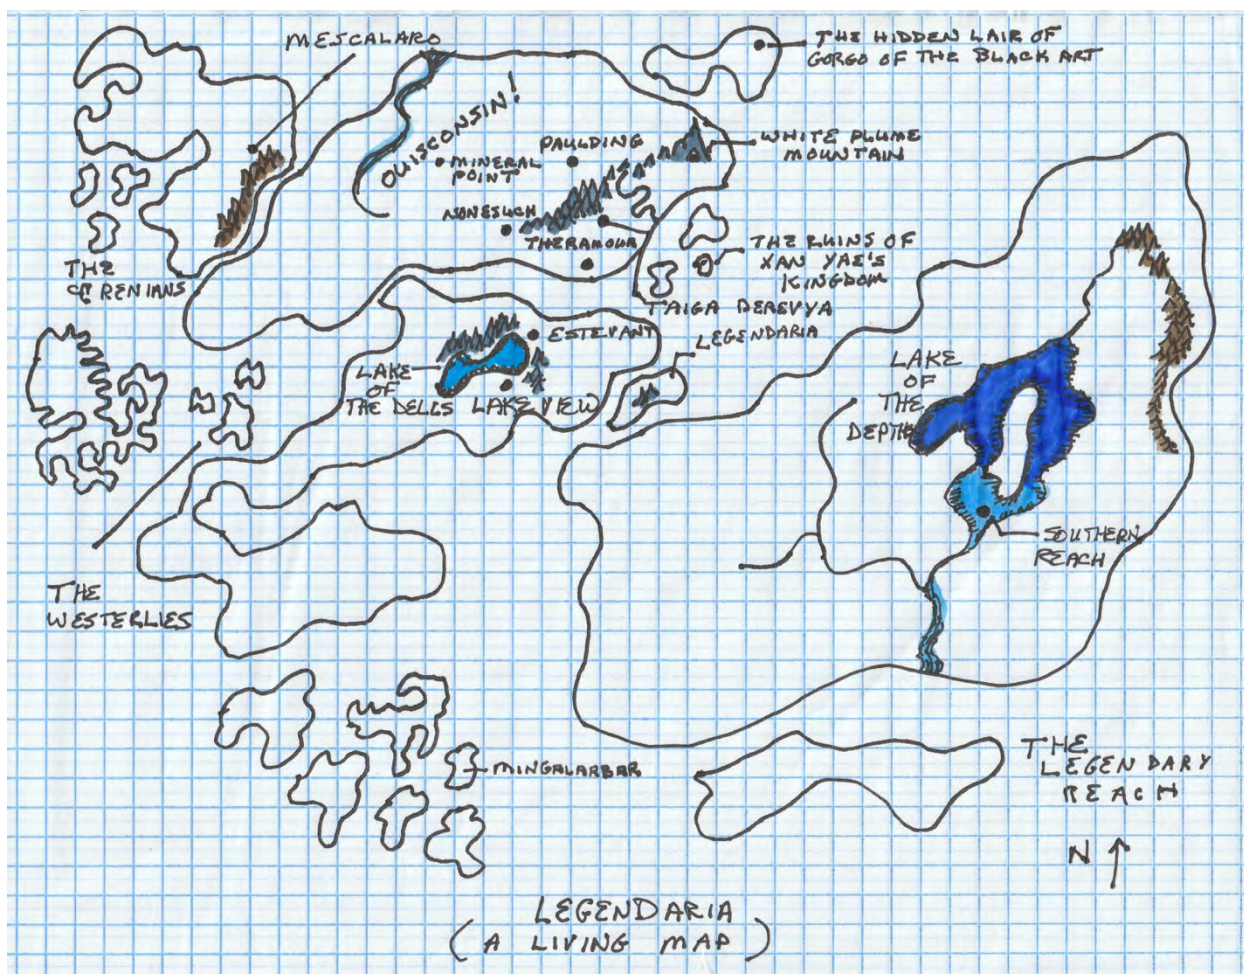 MESCALARO
THE HIDDEN LAIR OF
GORGO OF THE BLACK ART
OUISCONSIN!
PAULDING
WHITE PLUME
MOUNTAIN
MINERAL
POINT
NONESUCH
THERAMOUR
THE RUINS OF
XAN YAE'S
KINGDOM
THE
TAIGA DEREVYA
ESTEVANT
LEGENDARIA
LAKE
OF
THE DELLS
LAKE VIEW
LAKE
OF
THE
DEPTHS
SOUTHERN
REACH
THE
WESTERLIES
MINGALARBAR
THE
LEGENDARY
REACH
N
LEGENDARIA
(A LIVING MAP)